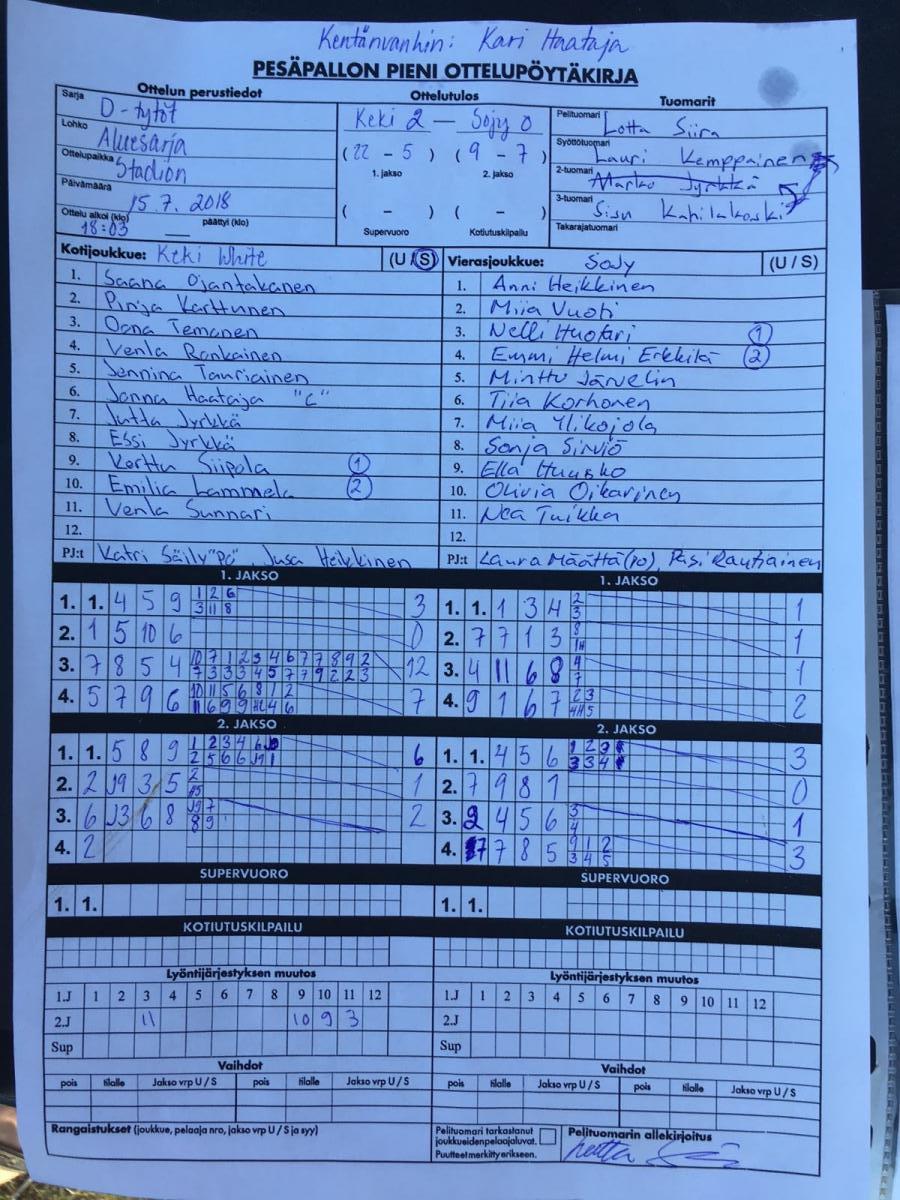 Kentänvanhin: Kari Haataja
PESÄPALLON PIENI OTTELUPÖYTÄKIRJA
Ottelun perustiedot
Sarja D-tytöt
Lohko Aluesarja
Ottelupaikka Stadion
Päivämäärä 15.7.2018
Ottelu alkoi (klo) 18:03 päättyi (klo)
Ottelutulos
Keki 2 — Sojy 0
(22 - 5) (9 - 7)
1. jakso 2. jakso
( - ) ( - )
Supervuoro Kotiutuskilpailu
Tuomarit
Pelituomari Lotta Siira
Syöttötuomari Lauri Kemppainen
2-tuomari Marko Jyrkkä
3-tuomari Sisu
Takarajatuomari
Kotijoukkue: Keki White (U / S)
1. Saana Ojantakanen
2. Pinja Karttunen
3. Oona Temonen
4. Venla Ronkainen
5. Jennina Tauriainen
6. Jonna Haataja "C"
7. Jutta Jyrkkä
8. Essi Jyrkkä
9. Korttu Siipola 1
10. Emilia Lammela 2
11. Venla Sunnari
12.
PJ:t Katri Säily "PO", Jusa Heikkinen
Vierasjoukkue: SoJy (U / S)
1. Anni Heikkinen
2. Miia Vuoti
3. Nelli Huotari 1
4. Emmi Helmi Erkkilä 2
5. Minttu Järvelin
6. Tiia Korhonen
7. Miia Ylikojola
8. Sonja Sirviö
9. Ella Huusko
10. Olivia Oikarinen
11. Nea Tuikka
12.
PJ:t Laura Määttä (po), Pasi Rautiainen
1. JAKSO
1. 1. 4 5 9 1 2 6 3
3 11 8
2. 1 5 10 6 0
3. 7 8 5 4 10 7 1 2 3 4 6 7 7 8 9 2 12
7 3 3 3 4 5 7 7 9 2 2 3
4. 5 7 9 6 10 11 5 6 8 1 2 7
2. JAKSO
1. 1. 5 8 9 6
2. 2 3 5 2 1
3. 6 6 8 2
4. 2
SUPERVUORO
1. 1.
KOTIUTUSKILPAILU
Lyöntijärjestyksen muutos
1.J 1 2 3 4 5 6 7 8 9 10 11 12
2.J 11 10 9 3
Sup
Vaihdot
pois tilalle Jakso vrp U / S pois tilalle Jakso vrp U / S
1. JAKSO
1. 1. 1 3 4 2 1
3
2. 7 7 1 3 8 1
3. 4 11 6 8 4 1
7
4. 9 1 6 7 2 3 2
2. JAKSO
1. 1. 4 5 6 1 2 3 3
3 3 4
2. 7 9 8 1 0
3. 2 4 5 6 3 1
4
4. 7 7 8 5 9 1 2 3
3 4 5
SUPERVUORO
1. 1.
KOTIUTUSKILPAILU
Lyöntijärjestyksen muutos
1.J 1 2 3 4 5 6 7 8 9 10 11 12
2.J
Sup
Vaihdot
pois tilalle Jakso vrp U / S pois tilalle Jakso vrp U / S
Rangaistukset (joukkue, pelaaja nro, jakso vrp U / S ja syy)
Pelituomari tarkastanut
joukkueidenpelaajaluvat.
Puutteet merkitty erikseen.
Pelituomarin allekirjoitus